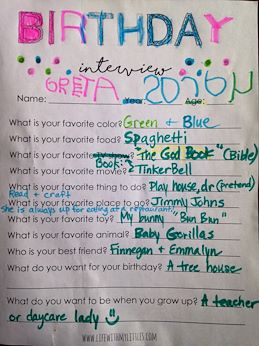 BIRTHDAY
interview
GRETA 2016 4
Name: Year: Age:
What is your favorite color? Green + Blue
What is your favorite food? Spaghetti
What is your favorite tv show? The God Book "(Bible)
Book:
What is your favorite movie? TinkerBell
What is your favorite thing to do? Play house, dr (pretend)
Read + craft
What is your favorite place to go? Jimmy Johns
She is always up for eating at a restaurant.
What is your favorite toy? My bunny "Bun Bun"
What is your favorite animal? Baby Gorillas
Who is your best friend? Finnegan + Emmalyn
What do you want for your birthday? A tree house
What do you want to be when you grow up? A teacher
or daycare lady
WWW.LIFEWITHMYLITTLES.COM